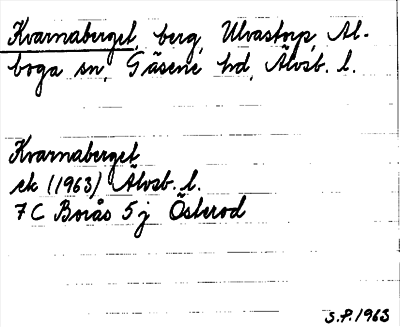 Kvarnaberget, berg, Ulvastorp, Al-
boga sn, Gäsene hd, Älvsb. l.
Kvarnaberget
ek (1963) Älvsb. l.
7 C Borås 5 j Österod
S.P. 1963